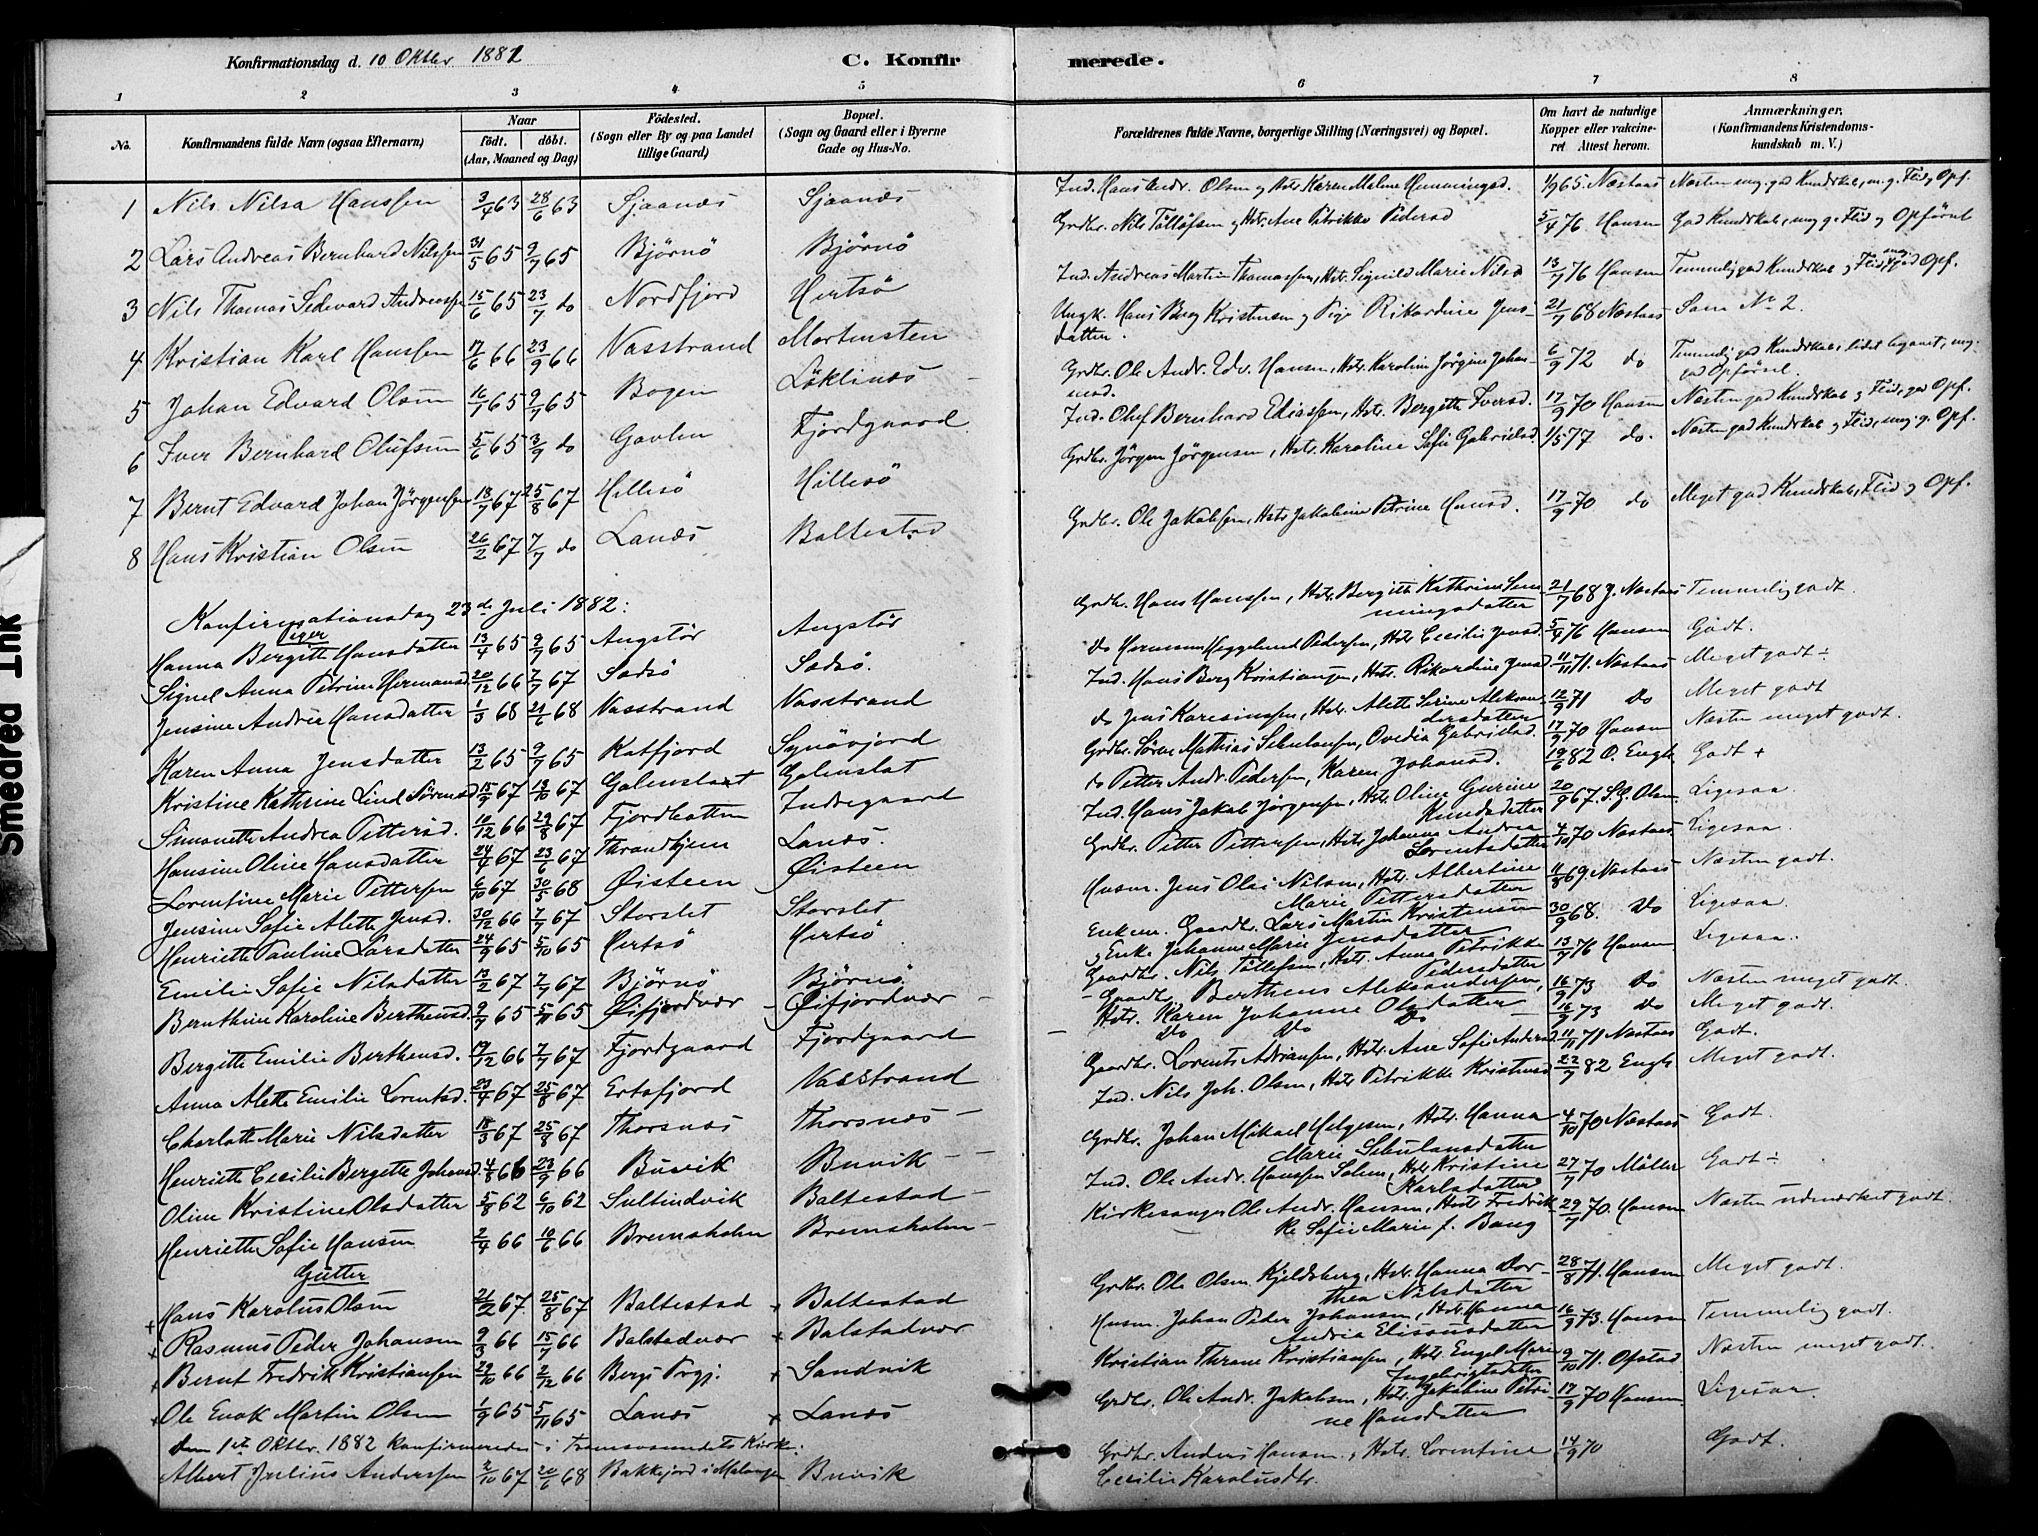 Konfirmationsdag d. 10 Oktber 1881
C. Konfirmerede.
1 2 3 4 5 6 7 8
No.
Konfirmandens fulde Navn (ogsaa Efternavn)
Naar
födt. döbt.
(Aar, Maaned og Dag)
Födested.
(Sogn eller By og paa Landet
tillige Gaard)
Bopæl.
(Sogn og Gaard eller i Byerne
Gade og Hus-No.
Forældrenes fulde Navne, borgerlige Stilling (Næringsvei) og Bopæl.
Om havt de naturlige
Kopper eller vakcine-
ret Attest herom.
Anmærkninger,
(Konfirmandens Kristendoms-
kundskab m. V.)
1 Nils Nilsa Hanssen 3/4 63 28/6 63 Sjaanæs Sjaanæs Ind. Hans Andr. Olsen og Hstr. Karen Malene Henningsd. 1/9 65. Næstaas Næsten mg. god Kundskab, m. g. Flid og Opf.
2 Lars Andreas Bernhard Nilssen 31/5 65 9/7 65 Bjørnö Bjørnö Grdbr. Nils Tölløfsen og Hstr. Ane Petrikke Pedersd 5/4 76 Hansen God Kundskab, mg g. Flid og Opförsel
3 Nils Thomas Sedevard Andreassen 15/6 65 23/7 do Nordfjord Hertsö Ind. Andreas Martin Thomassen, Hstr. Signild Marie Nilsd 13/7 76 Hansen Temmelig god Kundskab og Flid, meg. god Opf.
4 Kristian Karl Hanssen 17/6 66 23/9 66 Vasstrand Mortensten Ungk. Hans Berg Kristensen og Pige Rikardine Jens-
datter. 21/7 68 Næstaas Som No 2.
5 Johan Edvard Olsen 16/1 65 9/7 65 Bogen Löklinæs Grdbr. Ole Andr. Edv. Hansen, Hstr. Karoline Jørgine Johan-
nesd. 6/9 72 do Temmelig god Kundskab, lidet begavet, mg.
god Opförsel.
6 Iver Bernhard Olufsen 5/6 65 3/9 do Gavlen Fjordgaard Ind. Oluf Bernhard Eliassen, Hstr. Bergitte Iversd. 17/9 70 Hansen Næsten god Kundskab og Flid, god Opf.
7 Bernt Edvard Johan Jörgensen 18/7 67 25/8 67 Hillesö Hillesö Grdbr. Jörgen Jörgensen, Hstr. Karoline Sofie Gabrielsd 1/5 77 do. Næsten god Kundskab og Flid, meg. g. Opf.
8 Hans Kristian Olsen 26/2 67 7/7 do Lanæs Baltestad Grdbr. Ole Jakobsen, Hstr. Jakobine Petrine Hansd. 17/9 70 do Meget god Kundskab, Flid og Opf.
Konfirmationsdag 23de Juli 1882:
Piger
Hanna Bergitte Hansdatter 13/4 65 9/7 65 Angstör Angstör Grdbr. Hans Hanssen, Hstr. Bergitte Kathrine Sem-
mingsdatter 21/7 68 J. Næstaas Temmelig godt.
Signel Anna Petrine Hermansd. 20/12 66 7/7 67 Sadsö Sadsö. do Hermann Heggelund Pedersen, Hstr Cecilie Jensd. 5/4 76 Hansen Godt.
Jensine Andrée Hansdatter 1/3 68 21/6 68 Vasstrand Vasstrand Ind. Hans Berg Kristiansen, Hstr. Rikardine Jensd 11/11 71. Næstaas Meget godt ÷
Karen Anna Jensdatter 13/2 65 9/7 65 Katfjord do Jens Karesinssen, Hstr. Alette Serine Aleksan-
dersdatter 12/9 71 do Meget godt
Kristine Kathrine Lind Sörensd 15/9 67 13/10 67 Grdbr. Sören Mathias Sebulonsen, Ovedia Gabrielsd. 17/9 70 Hansen Næsten meget godt.
Simonette Andrea Pettersd. 10/12 66 29/8 67 Fjordbotten Indregaard do Petter Andr. Pedersen, Karen Johansd. 19/6 82 O. Engh Godt +
Hansine Oline Hansdatter 24/4 67 23/6 67 Thrandhjem Lanæs. Ind. Hans Jakob Jörgensen, Hstr. Oline Gurine
Knudsdatter 20/9 67. S. G. Olsen Ligesaa.
Lorentine Marie Pettersen 6/10 67 30/5 68 Øisteen Øisteen Grdbr. Petter Pettersen, Hstr Johanna Andrea
Lorentsdatter 4/10 70 Næstaas Ligesaa.
Jensine Sofie Alette Jensd. 30/12 66 7/7 67 Storslet Storslet Husm. Jens Olai Nilsen, Hstr. Albertine
Marie Pettersdatter 11/8 69 Næstaas Næsten godt.
Henriette Pauline Larsdatter 24/9 65 5/10 65 Hertsö Hertsö Enkem. Gaardbr. Lars Martin Kristensen
og Enke Johanna Marie Jensdatter 30/9 68. do Ligesaa
Emilie Sofie Nilsdatter 13/2 67 7/7 67 Bjørnö Bjørnö Gaardbr. Nils Tölløfsen, Hstr. Anna Petrikke
Pedersdatter 13/7 76 Hansen Ligesaa.
Bernthine Karoline Berthensd. 9/7 65 5/11 65 Øifjordvær Øifjordvær Gaardb. Berthens Aleksandersen,
Hstr. Karen Johanna Olsdatter 16/9 73 do Næsten meget godt.
Bergitte Emilie Berthensd. 19/12 66 7/7 67 Fjordgaard Fjordgaard do do do 16/9 73 do Meget godt.
Anna Alette Emilie Lorentsd. 23/4 67 25/8 67 Ertsfjord Vasstrand Gaardbr. Lorents Adriansen, Hstr. Ane Sofie Andersd 11/11 71 Næstaas Godt.
Charlotte Marie Nilsdatter 18/3 67 25/8 67 Thorsnæs Thorsnæs Ind. Nils Joh. Olsen, Hstr Petrikke Kristensd 22/7 82 Engh Meget godt.
Henriette Cecilie Bergette Johansd 4/8 66 23/9 66 Buvik Buvik Grdbr. Johan Mikael Helgesen, Hstr. Hanna
Marie Sebulonsdatter 4/10 70 Næstaas Godt.
Oline Kristine Olsdatter 5/8 62 6/10 62 Sultindvik Baltestad Ind. Ole Andr. Hanssen Solem, Hstr Kristine
Karlsdatter 27/7 70 Möller Godt ÷
Henriette Sofie Hansen 2/4 66 10/6 66 Bremsholm Bremsholm Kirkesanger Ole Andr. Hansen, Hstr Fredrik-
ke Sofie Marie f. Bang 29/7 70. Hansen Næsten udmærket godt.
Gutter
Hans Karolus Olsen 21/2 67. 25/8 67 Baltestad Baltestad Grdbr. Ole Olsen Kjeldsberg, Hstr. Hanna Dor-
thea Nilsdatter 28/8 71. Hansen Meget godt.
Rasmus Peder Johansen 9/3 66 15/7 66 Balstadvær Balstadvær Husm. Johan Peder Johansen, Hstr. Hanna
Andria Eliseusdatter 16/9 73. Hansen Temmelig godt.
Bernt Fredrik Kristiansen 29/10 66 2/12 66 Bergs Prgj. Sandvik Kristian Thrane Kristiansen, Hstr. Engel Marie
Ingebrigtsdatter 9/10 71. Opstad Næsten meget godt.
Ole Enok Martin Olsen 1/9 65 5/11 65 Lanæs Lanæs Grdbr. Ole Andr. Jakobsen, Hstr. Jakobine Petri-
ne Hansdatter 17/9 70 Hansen. Ligesaa.
den 1ste Oktbr. 1882 konfirmeredes i Tromsøsundets Kirke:
Albert Julius Anderssen 2/10 67 20/6 68 Bakkejord i Malangen Buvik Grdbr. Anders Hansen, Hstr. Lorentine
Cecilie Karolusdtr. 14/9 70 Godt.
Smeared Ink